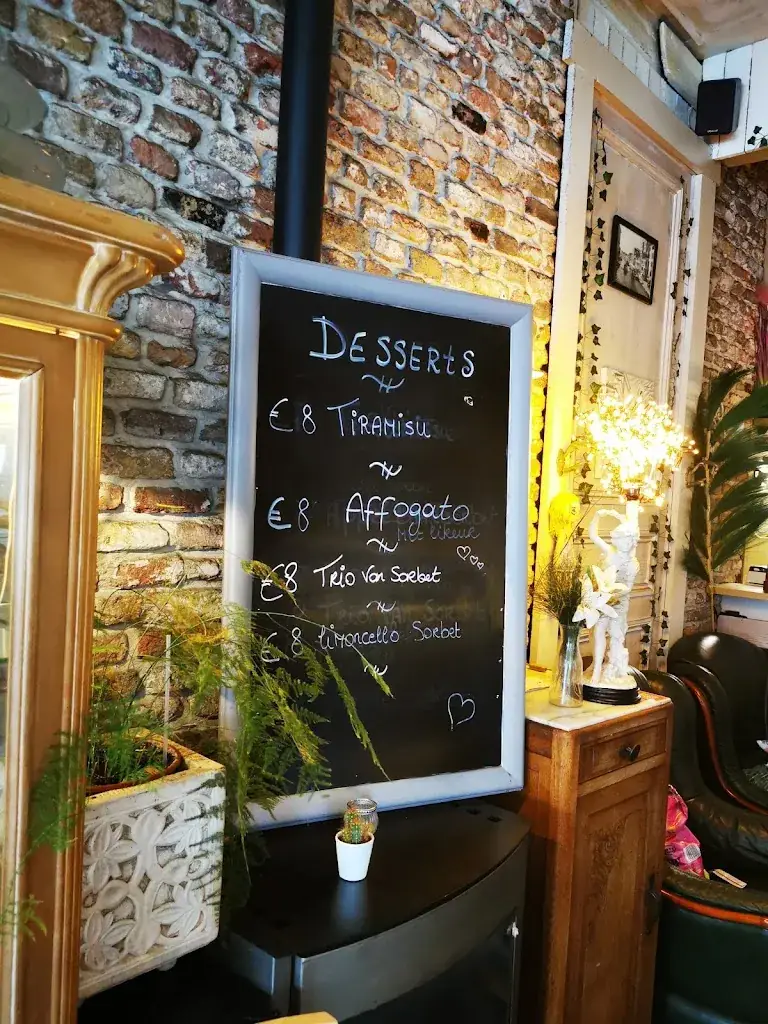 DESSERTS
€ 8 TIRAMISU
€ 8 AFFOGATO
Met likeur
€ 8 Trio Van Sorbet
€ 8 limoncello Sorbet